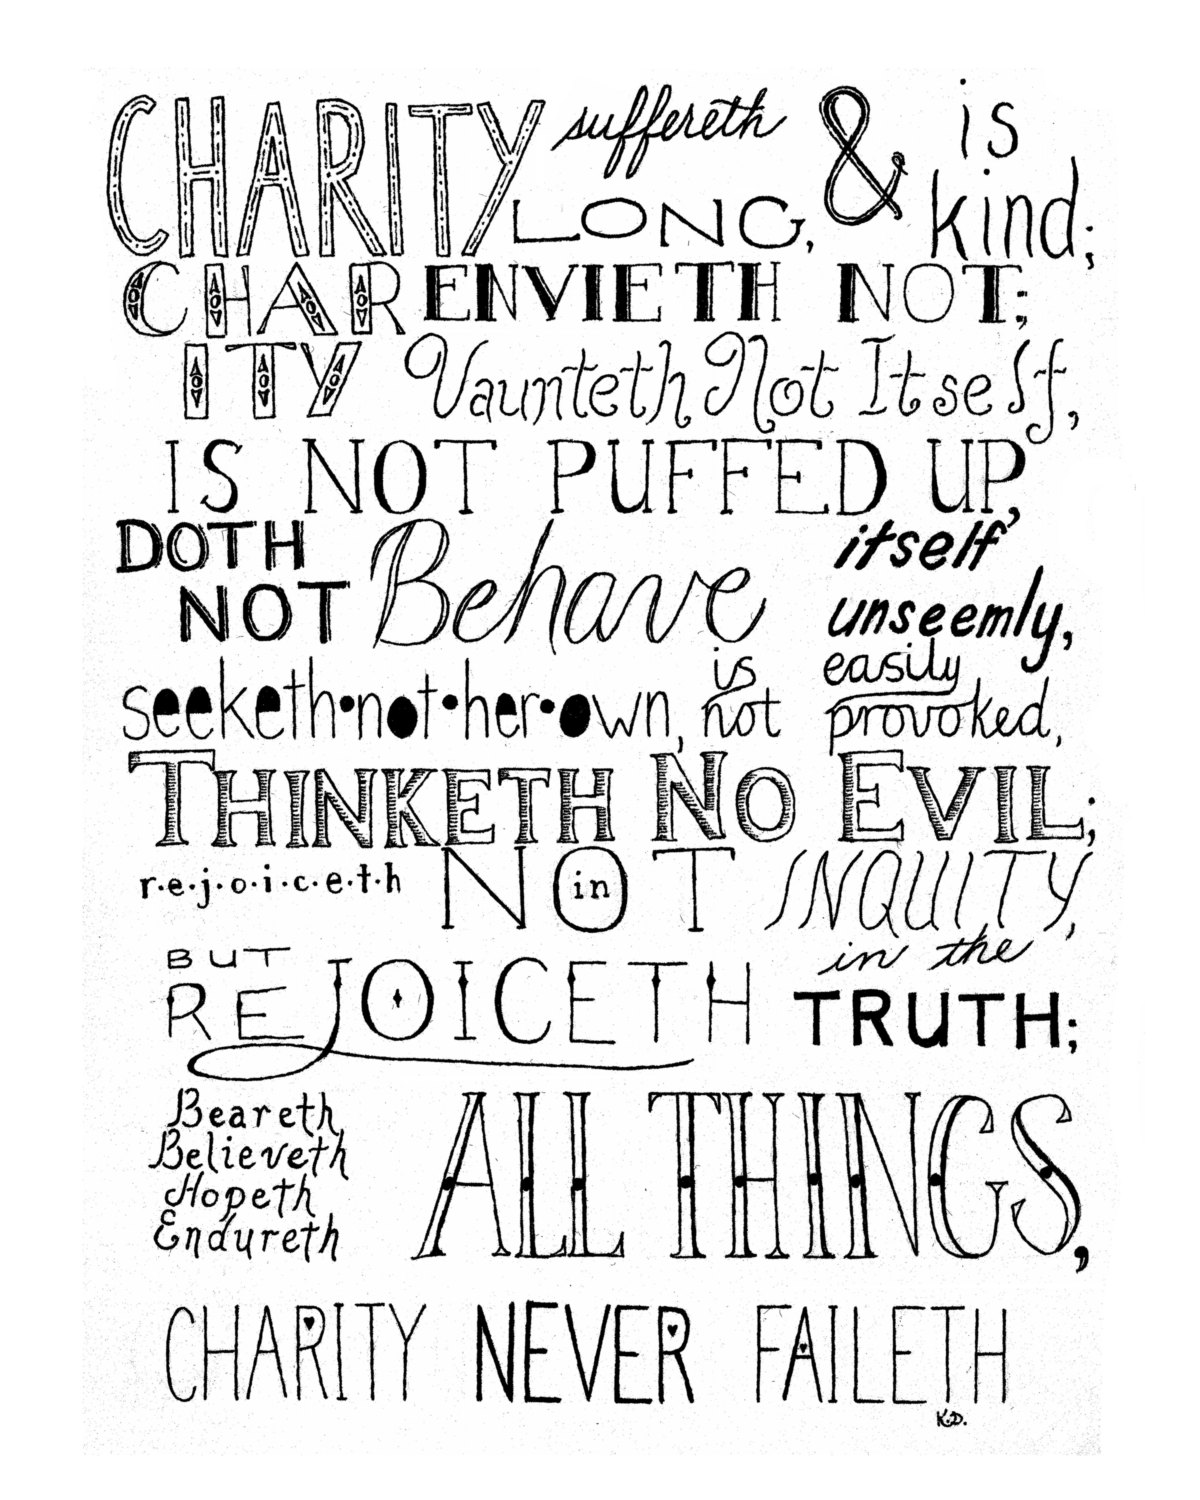 CHARITY suffereth LONG, & is kind;
CHARITY ENVIETH NOT;
Vaunteth Not Itself,
IS NOT PUFFED UP,
DOTH NOT Behave itself unseemly,
seeketh·not·her·own, is not easily provoked,
THINKETH NO EVIL;
r·e·j·o·i·c·e·t·h NOT in INQUITY,
BUT REJOICETH in the TRUTH;
Beareth,
Believeth
Hopeth
Endureth
ALL THINGS,
CHARITY NEVER FAILETH
K.D.